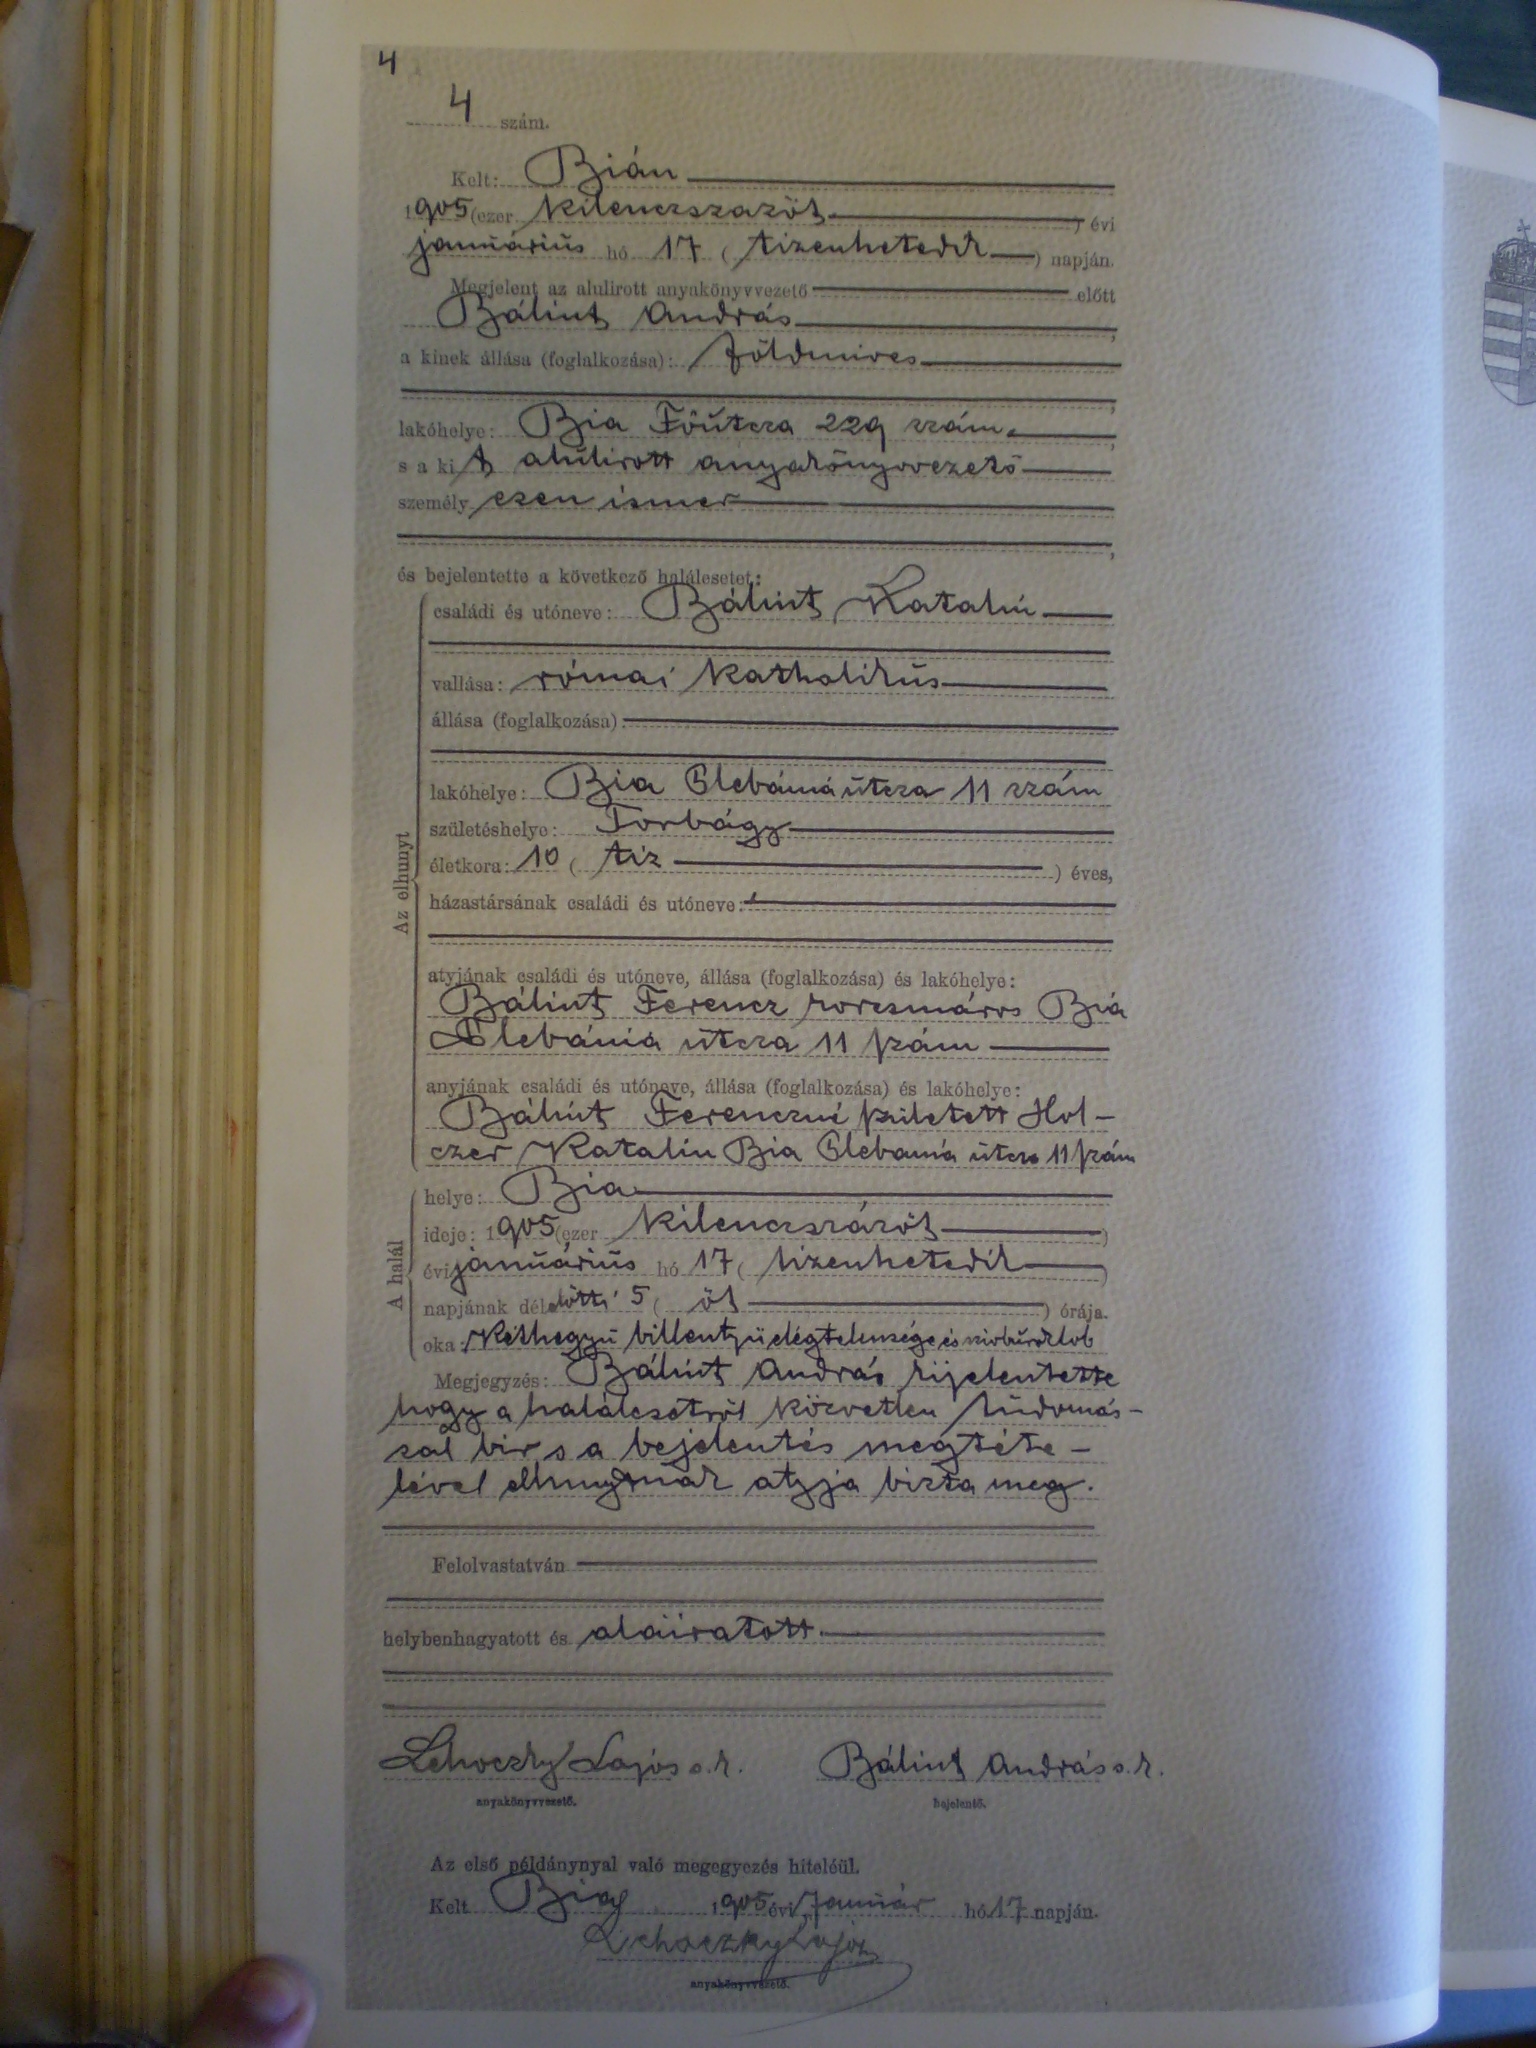 4
4 szám.
Kelt: Bián
1905 (ezer kilenczszazöt ) évi
januárius hó 17 ( tizenhetedik ) napján.
Megjelent az alulirott anyakönyvvezető előtt
Bálint András ,
a kinek állása (foglalkozása): földmives
,
lakóhelye: Bia Főútcza 229 szám. ,
s a kit alulirott anyakönyvvezető
személyesen ismer
,
és bejelentette a következő halálesetet:
Az elhunyt
családi és utóneve: Bálint Katalin
vallása: római katholikus
állása (foglalkozása):
lakóhelye: Bia Clebánia útcza 11 szám
születéshelye: Torbágy
életkora: 10 ( tiz ) éves,
házastársának családi és utóneve:
atyjának családi és utóneve, állása (foglalkozása) és lakóhelye:
Bálint Ferencz korcsmáros Bia
Clebánia útcza 11 szám
anyjának családi és utóneve, állása (foglalkozása) és lakóhelye:
Bálint Ferenczné született Hol-
czer Katalin Bia Clebania útcza 11 szám
A halál
helye: Bia
ideje: 1905 (ezer kilenczszázöt )
évi januárius hó 17 ( tizenhetedik )
napjának délelőtti 5 ( öt ) órája.
oka: Kéthegyü billentyü elégtelensége és szivburoklob
Megjegyzés: Bálint András kijelentette
hogy a halálesetről közvetlen tudomás-
sal bir s a bejelentés megtéte-
lével elhunytnak atyja bizta meg.
Felolvastatván
helybenhagyatott és aláiratott
Lehoczky Lajos s. k. Bálint András s. k.
anyakönyvvezető. bejelentő.
Az első példánynyal való megegyezés hiteléül.
Kelt Bia 1905 évi január hó 17 napján.
Lehoczky Lajos
anyakönyvvezető.